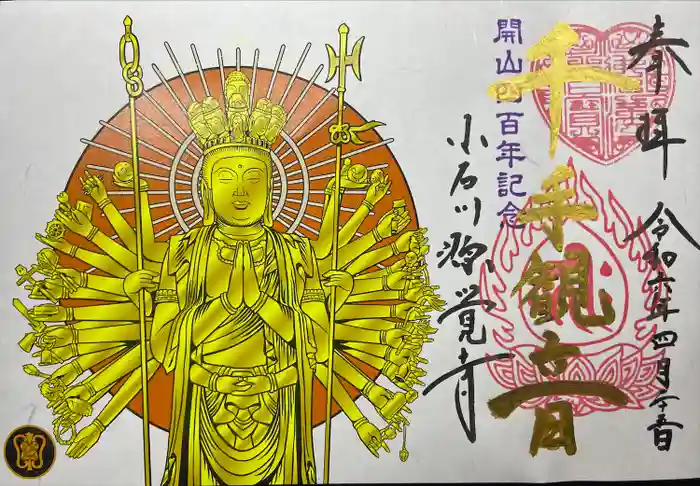 奉拝
令和六年四月二十五日
千手観音
開山四百年記念
小石川源覚寺